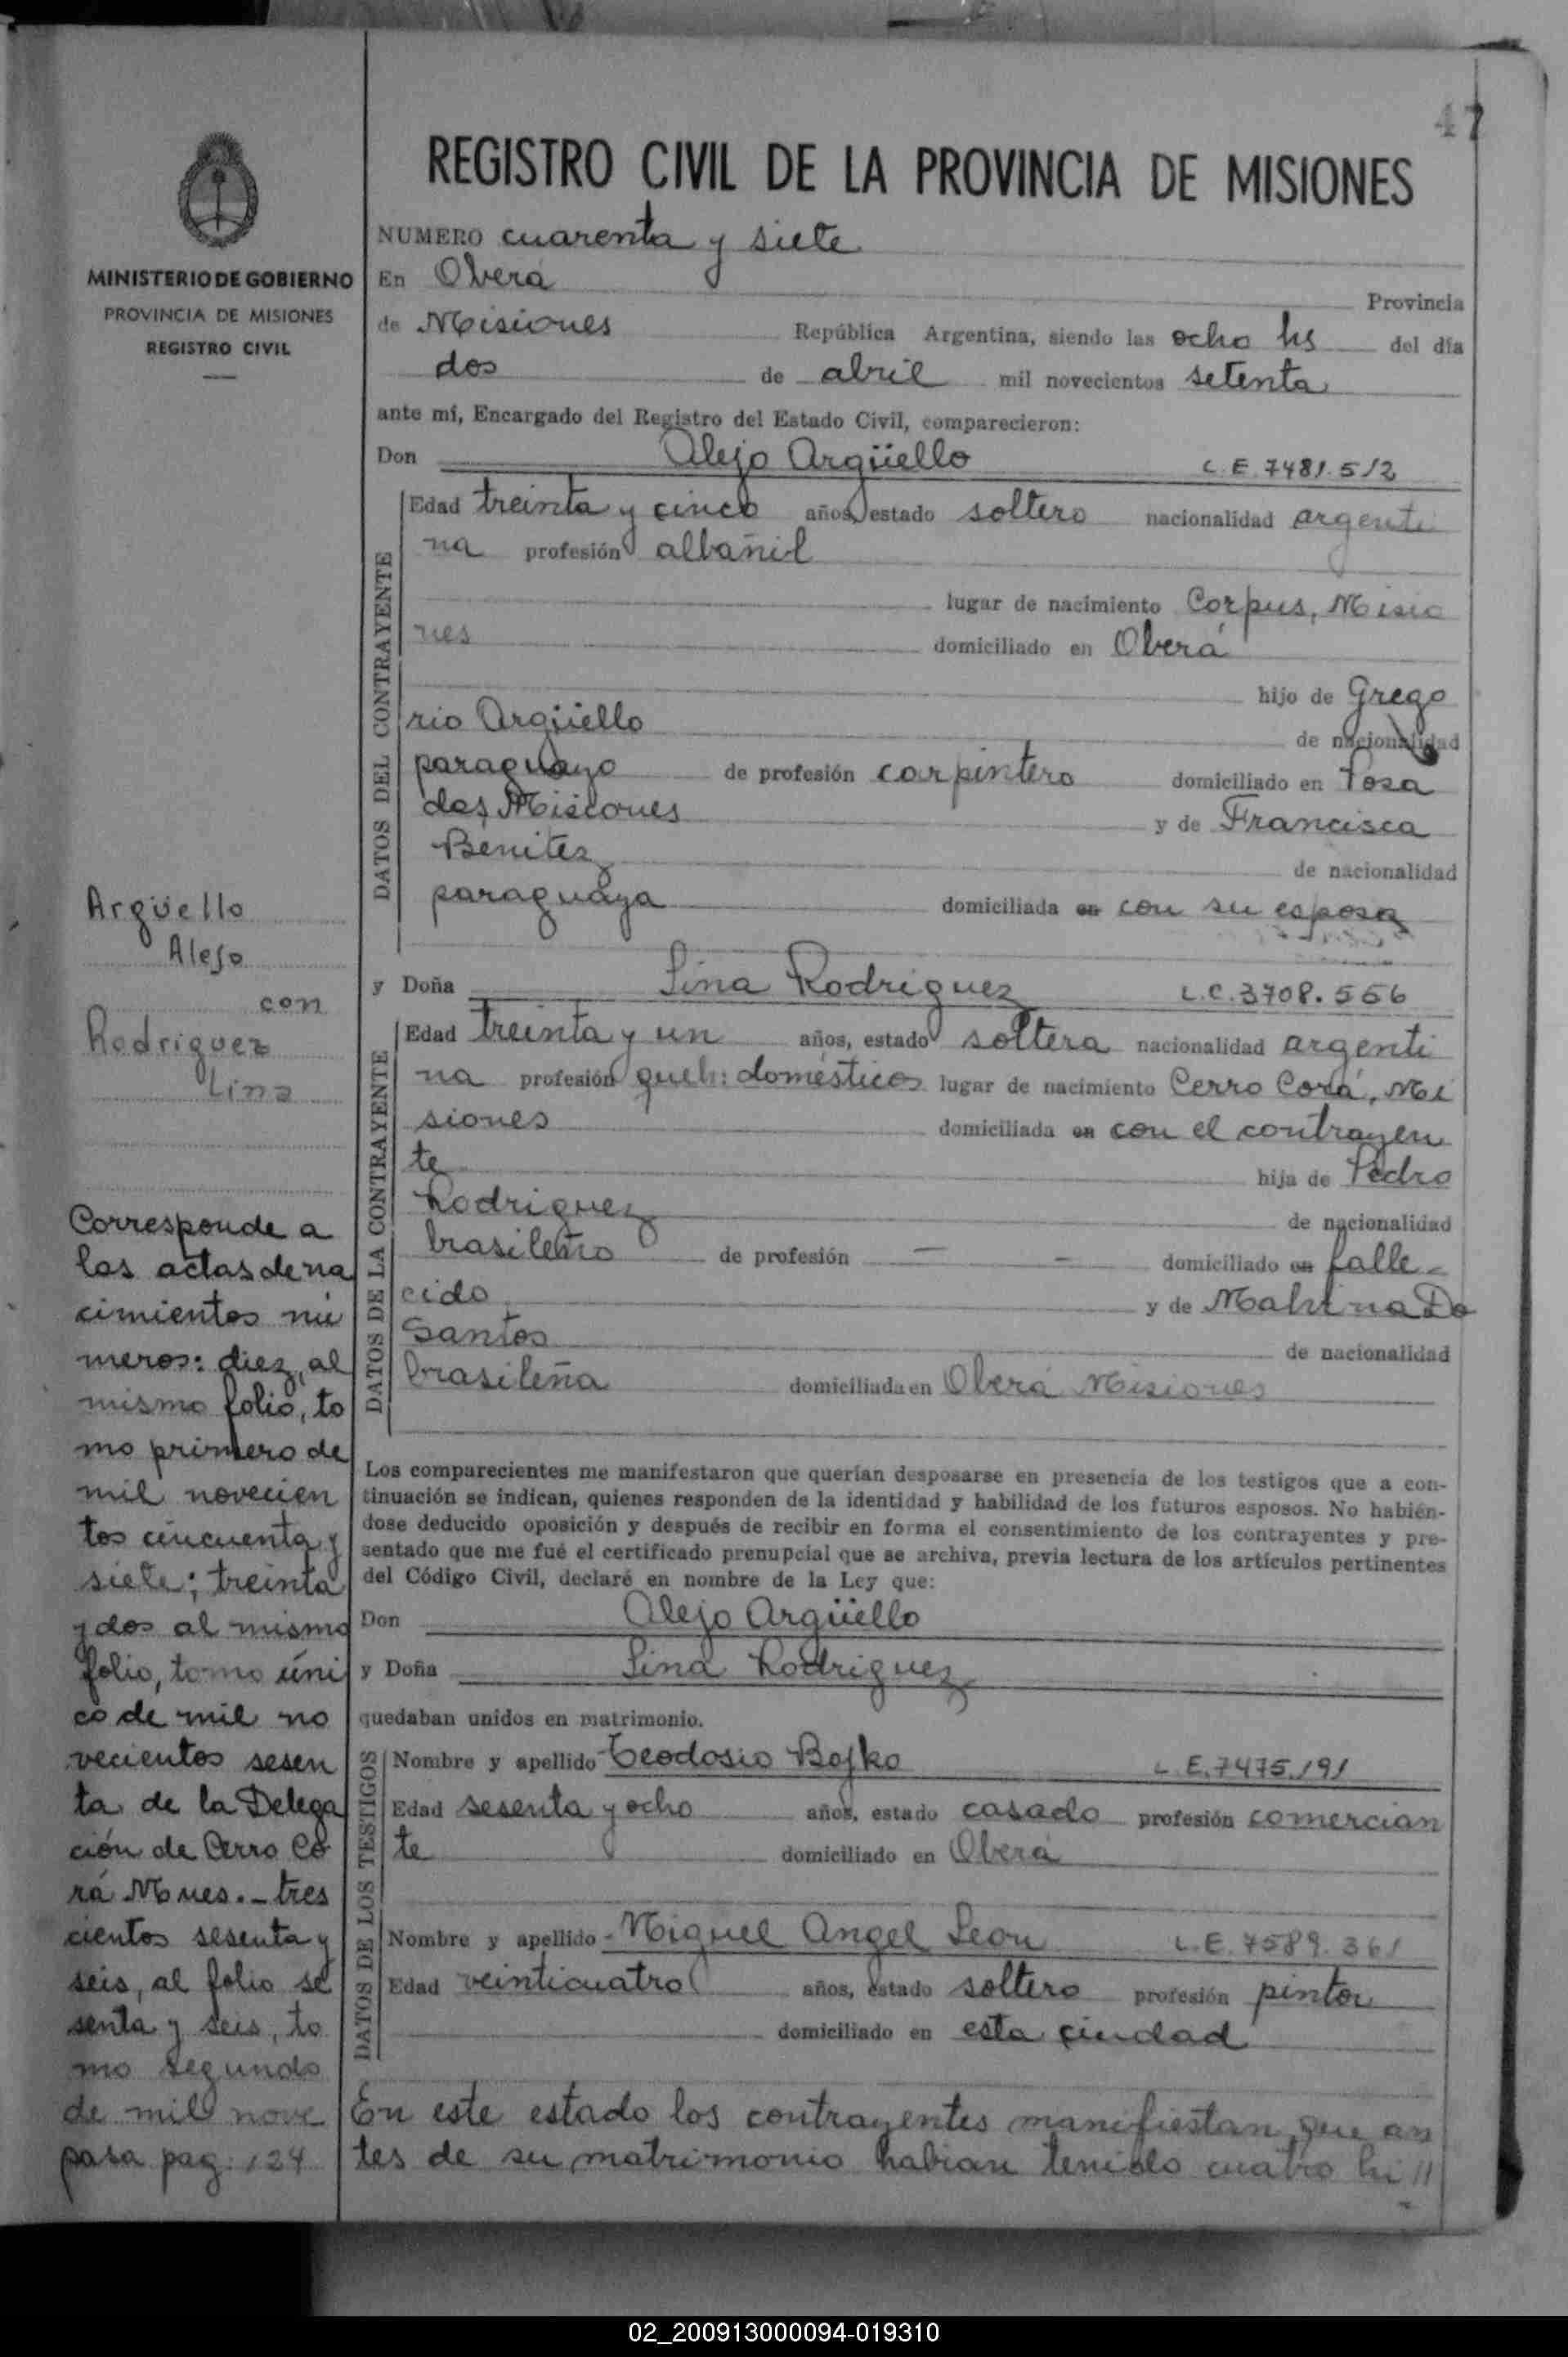 47
REGISTRO CIVIL DE LA PROVINCIA DE MISIONES
MINISTERIO DE GOBIERNO
PROVINCIA DE MISIONES
REGISTRO CIVIL
NUMERO cuarenta y siete
En Oberá Provincia
de Misiones República Argentina, siendo las ocho hs del día
dos de abril mil novecientos setenta
ante mí, Encargado del Registro del Estado Civil, comparecieron:
Don Alejo Argüello L.E. 7481.512
DATOS DEL CONTRAYENTE
Edad treinta y cinco años, estado soltero nacionalidad argenti
na profesión albañil
lugar de nacimiento Corpus, Misio
nes domiciliado en Oberá
hijo de Grego
rio Argüello de nacionalidad
paraguayo de profesión carpintero domiciliado en Posa
das, Misiones y de Francisca
Benitez de nacionalidad
paraguaya domiciliada en con su esposa
y Doña Lina Rodriguez L.C. 3708.556
DATOS DE LA CONTRAYENTE
Edad treinta y un años, estado soltera nacionalidad argenti
na profesión queh: domésticos lugar de nacimiento Cerro Corá, Mi
siones domiciliada en con el contrayen
te hija de Pedro
Rodriguez de nacionalidad
brasileño de profesión — - domiciliado en falle-
cido y de Do
Santos de nacionalidad
brasileña domiciliada en Oberá Misiones
Los comparecientes me manifestaron que querían desposarse en presencia de los testigos que a con-
tinuación se indican, quienes responden de la identidad y habilidad de los futuros esposos. No habién-
dose deducido oposición y después de recibir en forma el consentimiento de los contrayentes y pre-
sentado que me fué el certificado prenupcial que se archiva, previa lectura de los artículos pertinentes
del Código Civil, declaré en nombre de la Ley que:
Don Alejo Argüello
y Doña Lina Rodriguez
quedaban unidos en matrimonio.
DATOS DE LOS TESTIGOS
Nombre y apellido Teodosio Bojko L.E. 7475.191
Edad sesenta y ocho años, estado casado profesión comercian
te domiciliado en Oberá
Nombre y apellido - Miguel Angel Leon L.E. 7589.361
Edad veinticuatro años, estado soltero profesión pintor
domiciliado en esta ciudad
En este estado los contrayentes manifiestan que an
tes de su matrimonio habian tenido cuatro hi //
Argüello
Alejo
con
Rodriguez
Lina
Corresponde a
las actas de na
cimientos nú
meros: diez, al
mismo folio, to
mo primero de
mil novecien
tos cincuenta y
siete; treinta
y dos al mismo
folio, tomo úni
co de mil no
vecientos sesen
ta de la Delega
ción de Cerro Co
rá Mnes.- tres
cientos sesenta y
seis, al folio se
senta y seis, to
mo segundo
de mil nove
pasa pag: 124
02_200913000094-019310